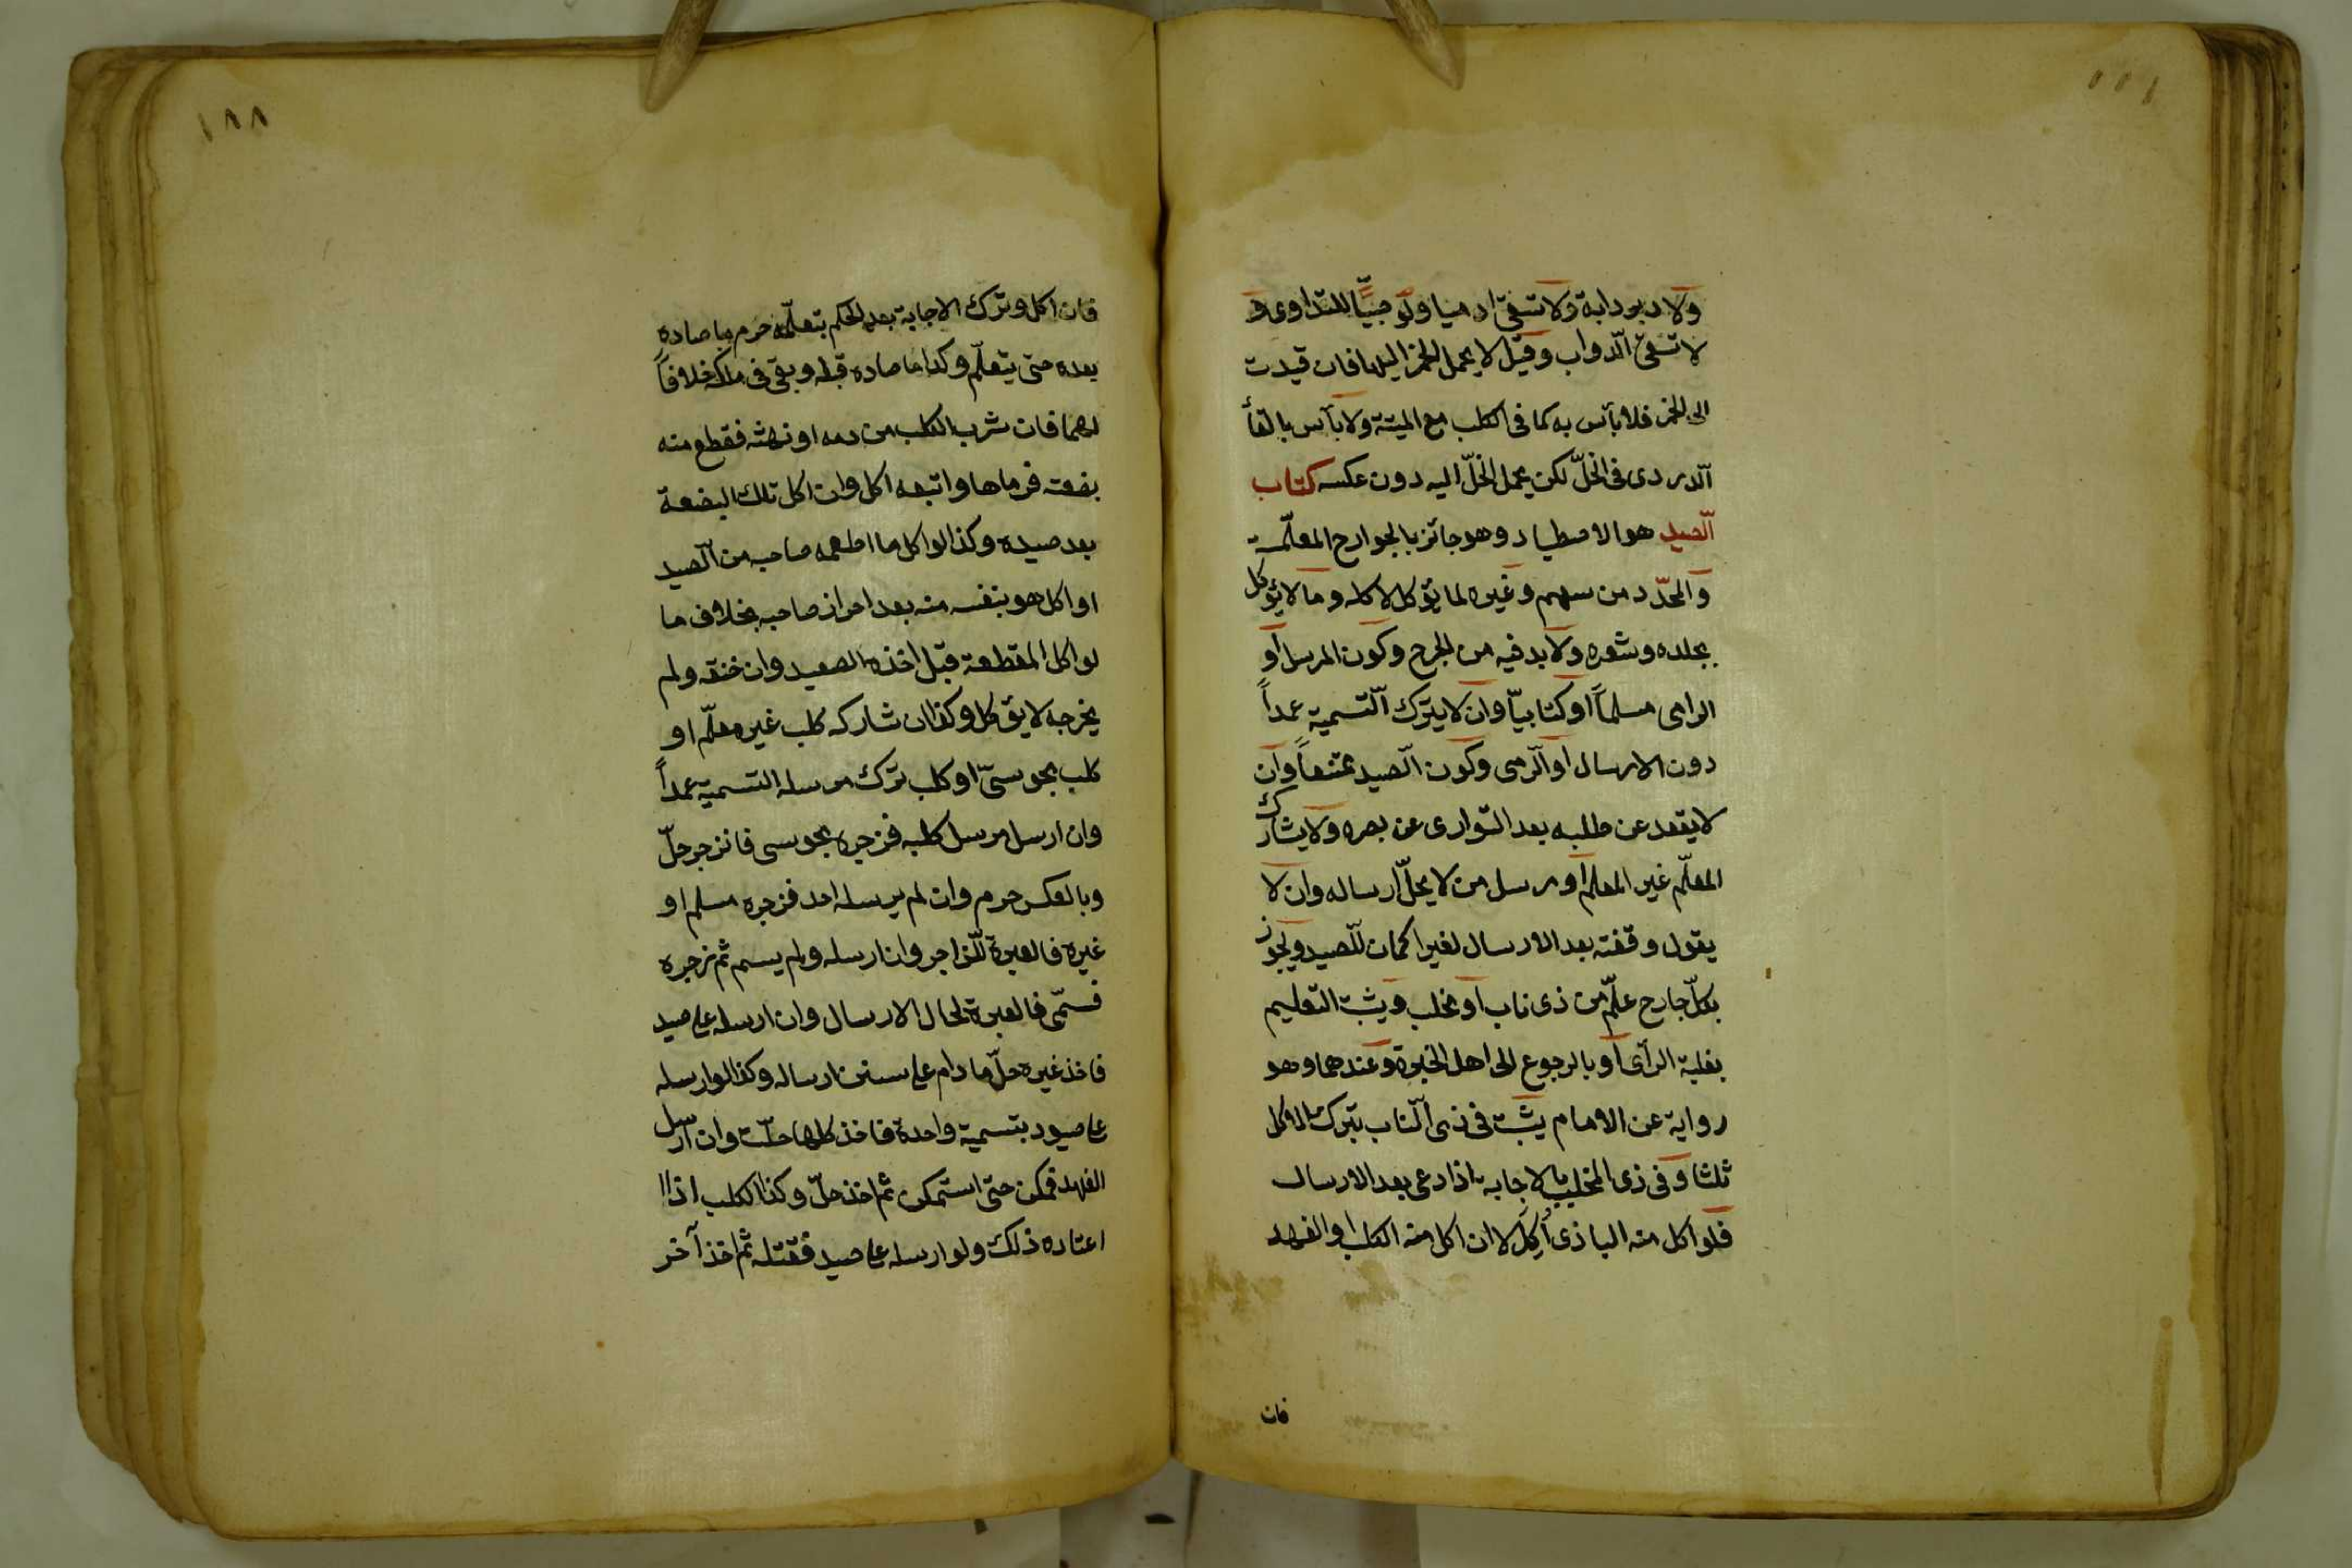 ولا دبر دابة ولا تسقى ادميا ولو صبيّاً للتداوى و
لا تسقى الدواب وقيل لا يحمل الخمر اليها فان قيدت
الى الخمر فلا بأس به كما فى الكلب مع الميتة ولا بأس بالقأ
الدردى فى الخلّ لكن يحمل الخلّ اليه دون عكسه كتاب
الصيد هو الاصطياد وهو جائز بالجوارح المعلّمة
والمحدّد من سهم وغيره لما يؤكل لاكله وما لا يؤكل
بجلده وشعره ولا بد فيه من الجرح وكون المرسل او
الرامى مسلماً او كتابيّاً وان لا يترك التسمية عمداً
دون الارسال او الرمى وكون الصيد ممتنعاً وان
لا يقعد عن طلبه بعد التوارى عن بصره ولا يشارك
المعلّم غير المعلم او مرسل من لا يحلّ ارساله وان لا
يطول وقفته بعد الارسال لغير اكمان للصيد ويجوز
بكلّ جارح علّم من ذى ناب او مخلب ويثبت التعليم
بغلبة الرأى او بالرجوع الى اهل الخبرة وعندهما وهو
رواية عن الامام يثبت فى ذى الناب بترك الاكل
ثلثا وفى ذى المخلب بالاجابة اذا دعى بعد الارسال
فلو اكل منه البازى أُكِلَ لا ان اكل منه الكلب او الفهد
فان
١٨٨
فان اكل وترك الاجابة بعد الحكم بتعلّمه حرم ما صاده
بعده حتى يتعلّم وكذا ما صاده قبله وبقى فى ملكه خلافاً
لهما فان شرب الكلب من دمه او نهشه فقطع منه
بضعة فرماها واتبعه اكل وان اكل تلك البضعة
بعد صيده وكذا لو اكل ما اطعمه صاحبه من الصيد
او اكل هو بنفسه منه بعد احراز صاحبه بخلاف ما
لو اكل القطعة قبل اخذه الصيد وان خنقه ولم
يخرجه لا يؤكل وكذا ان شاركه كلب غير معلّم او
كلب مجوسىّ او كلب ترك مرسله التسمية عمداً
وان ارسل مرسل كلبه فزجره مجوسى فانزجر حلّ
وبالعكس حرم وان لم يرسله احد فزجره مسلم او
غيره فالعبرة للزاجر وان ارسله ولم يسم ثم زجره
فسمّى فالعبرة لحال الارسال وان ارسله على صيد
فاخذ غيره حلّ ما دام على سنن ارساله وكذا لو ارسله
على صيود بتسمية واحدة فاخذ كلها حلّت وان ارسل
الفهد فكمن حتى استمكن ثم اخذ حلّ وكذا الكلب اذا
اعتاده ذلك ولو ارسله على صيد فقتله ثم اخذ آخر